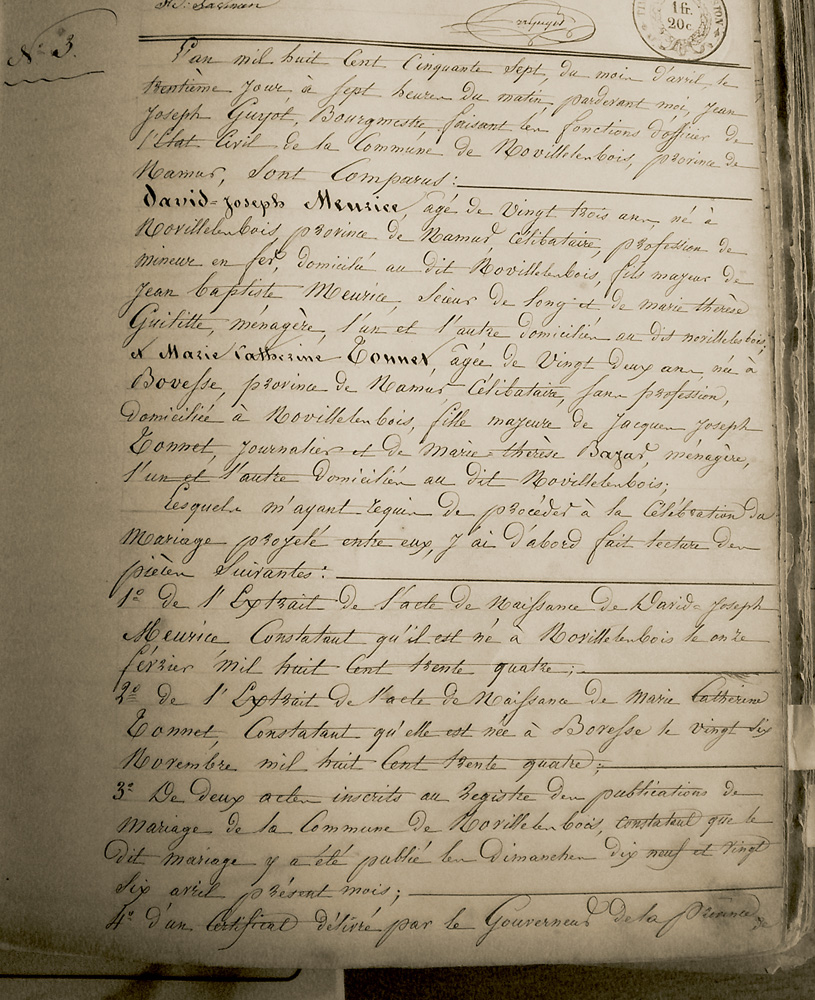 N° 3.
1 fr.
20 c
L'an mil huit Cent Cinquante Sept, du mois d'avril, le
trentième Jour à Sept heures du matin, pardevant moi, Jean
Joseph Guyot, Bourgmestre faisant les fonctions d'officier de
l'Etat Civil de la Commune de Novillelesbois, province de
Namur, Sont Comparus :
David-Joseph Meurice, âgé de Vingt trois ans, né à
Novillelesbois province de Namur Célibataire, profession de
mineur en fer, domicilié au dit Novillelesbois, fils majeur de
Jean baptiste Meurice, Scieur de long et de marie thérèse
Guilitte, ménagère, l'un et l'autre domiciliés au dit novillelesbois;
et Marie Catherine Tonnet, âgée de Vingt deux ans née à
Bovesse, province de Namur Célibataire, sans profession,
domiciliée à Novillelesbois, fille majeure de Jacques Joseph
Tonnet, Journalier et de Marie-thérèse Bazar, ménagère,
l'un et l'autre Domiciliés au dit Novillelesbois;
Lesquels m'ayant requis de procéder à la Célébration du
Mariage projeté entre eux, J'ai d'abord fait lecture des
pièces Suivantes :
1° de l'Extrait de l'acte de Naissance de David-Joseph
Meurice Constatant qu'il est né à Novillelesbois le onze
février mil huit Cent trente quatre;
2° de l'Extrait de l'acte de Naissance de Marie Catherine
Tonnet, Constatant qu'elle est née à Bovesse le vingt six
Novembre mil huit Cent trente quatre;
3° De deux actes inscrits au Registre des publications de
Mariage de la Commune de Novillelesbois, constatant que le
dit mariage y a été publié les Dimanches dix neuf et vingt
Six avril présent mois;
4° d'un Certificat délivré par le Gouverneur de la province de